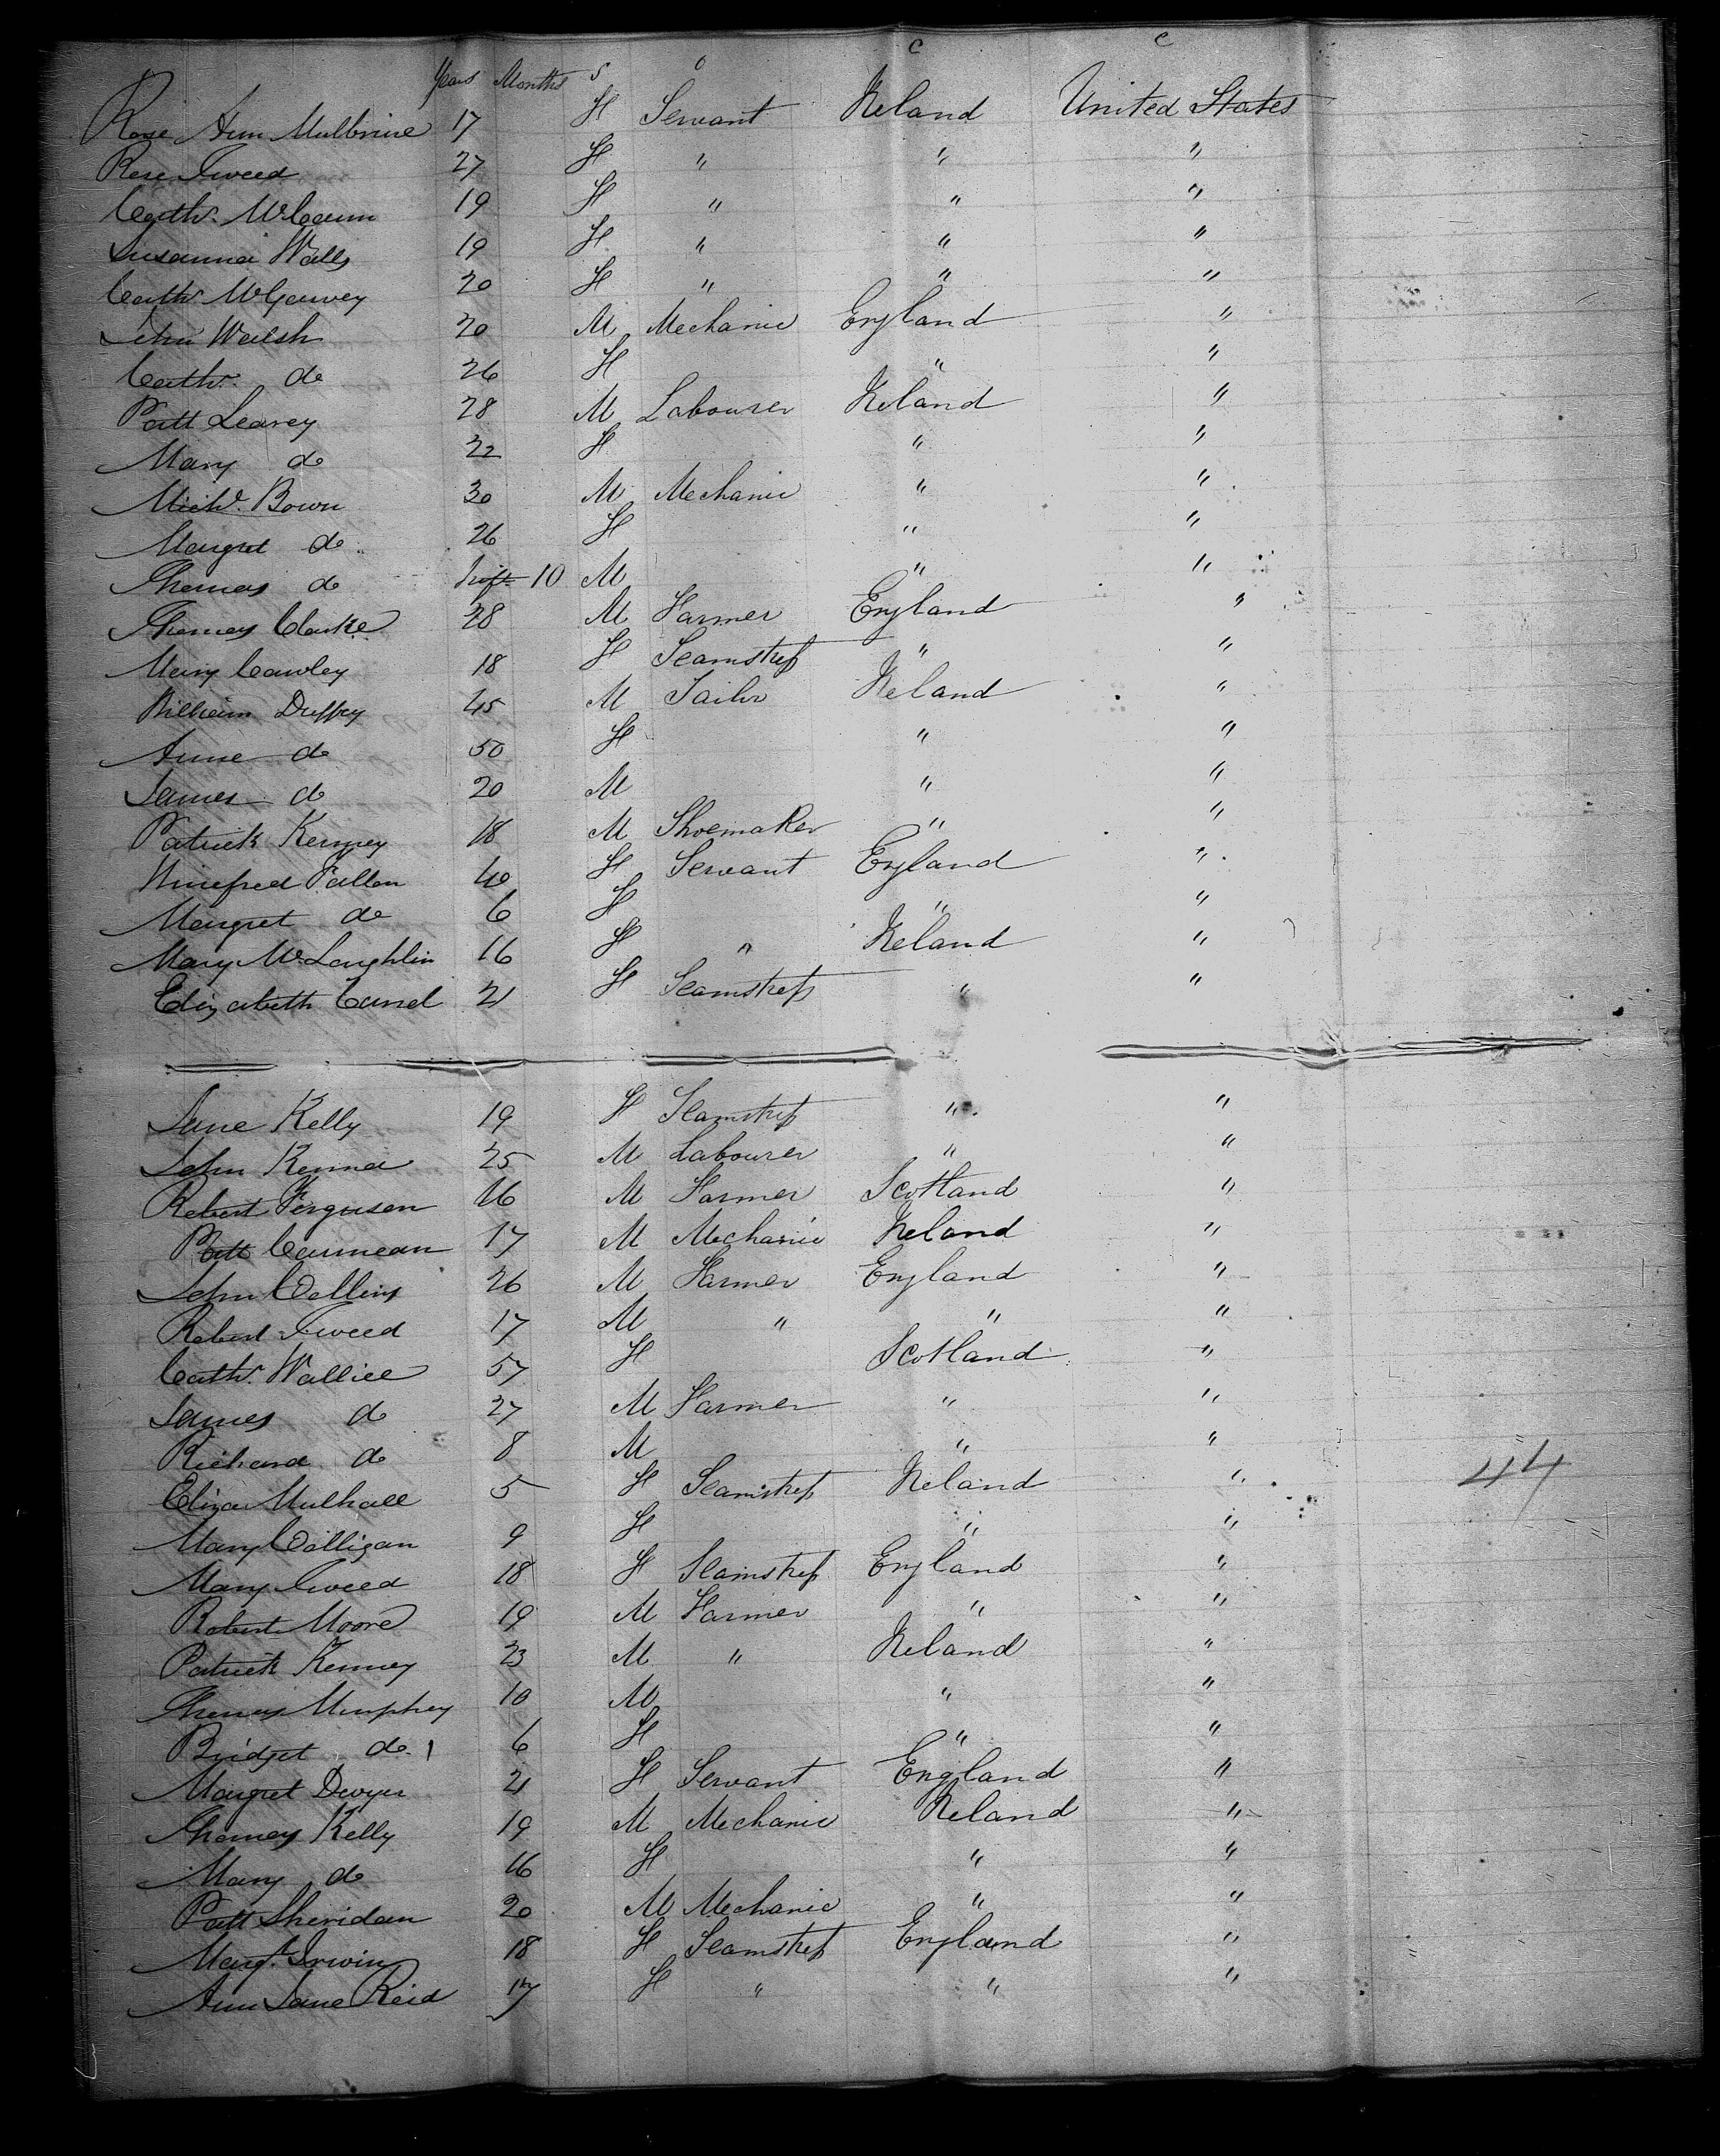 Years Months S O C C
Rose Ann Mulbrine 17 F Servant Ireland United States
Rose Tweed 27 F " " "
Cathe. McCann 19 F " " "
Susanna Walls 19 F " " "
Cathe. McGarvey 20 F " " "
John Walsh 20 M Mechanic England "
Cathe. do 26 F " "
Patt Learey 28 M Labourer Ireland "
Mary do 22 F " "
Michl. Bown 30 M Mechanic " "
Margret do 26 F " "
Thomas do 10 M " "
Thomas Clarke 28 M Farmer England "
Mary Cawley 18 F Seamstress " "
William Duffey 45 M Tailor Ireland "
Anne do 50 F " "
James do 20 M " "
Patrick Kenney 18 M Shoemaker " "
Winefred Fallon 40 F Servant England "
Margret do 6 F " "
Mary McLoughlin 16 F " Ireland "
Elizabeth 21 F Seamstress " "
Jane Kelly 19 F Seamstress " "
John Kenna 25 M Labourer " "
Robert Ferguson 16 M Farmer Scotland "
Patt 17 M Mechanic Ireland "
John Collins 26 M Farmer England "
Robert Tweed 17 M " " "
Cathe. Wallice 57 F Scotland "
James do 27 M Farmer " "
Richard do 8 M " "
Eliza Mulhall 5 F Seamstress Ireland "
Mary Colligan 9 F " "
Mary Tweed 18 F Seamstress England "
Robert Moore 19 M Farmer " "
Patrick Kenney 23 M " Ireland "
Thomas Murphey 10 M " "
Bridget do. 6 F " "
Margret Dwyer 21 F Servant England "
Thomas Kelly 19 M Mechanic Ireland "
Mary do 16 F " "
Patt Sheridan 20 M Mechanic " "
Margt. Irwin 18 F Seamstress England "
Ann Jane Reid 17 F " " "
44